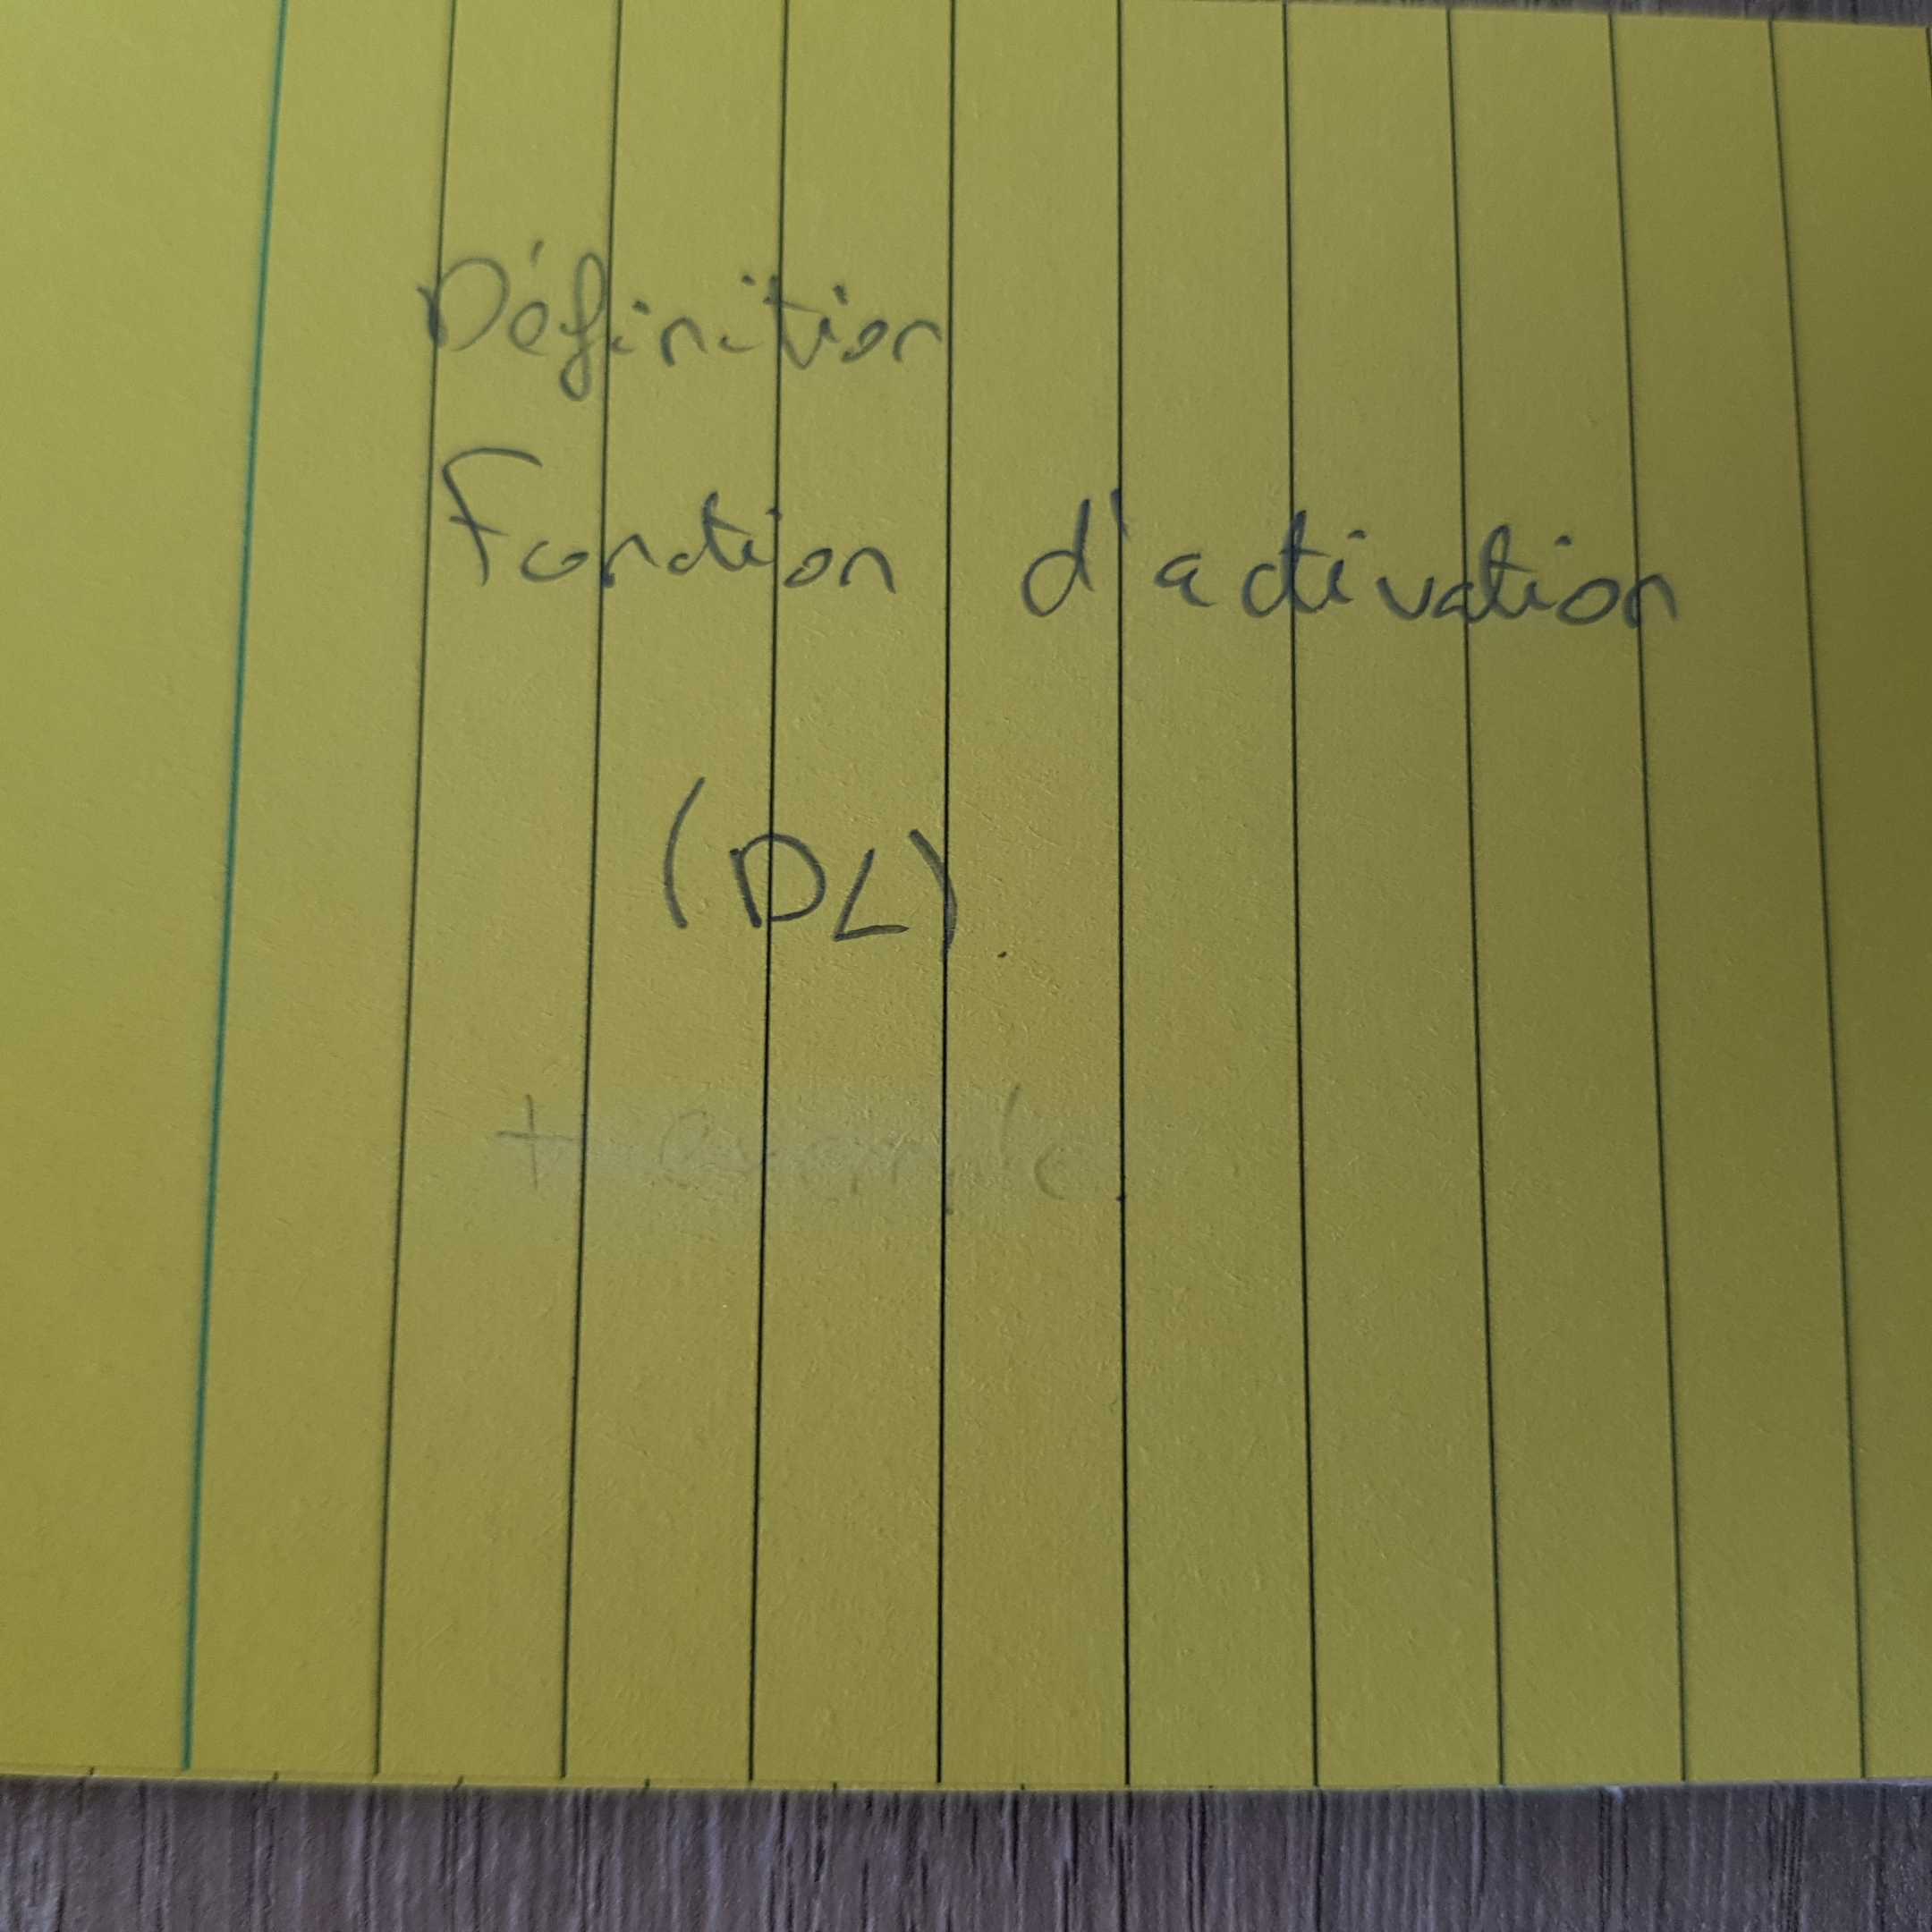 Définition
Fonction d'activation
(DL).
+ exemple